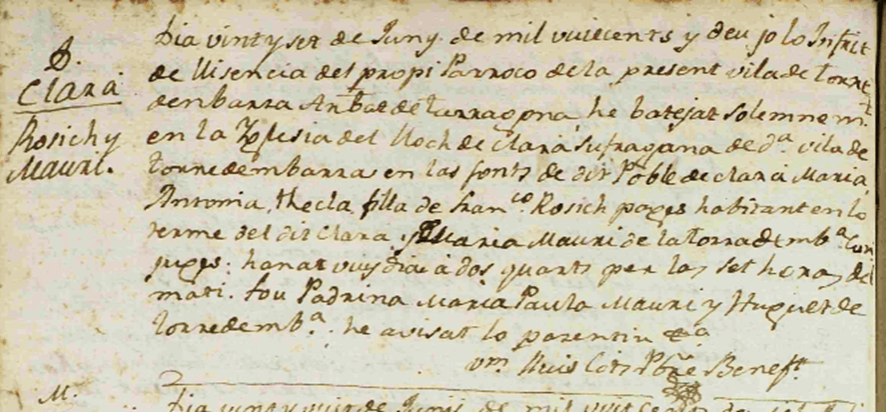 B.
Clarà
Rosich y
Mauri.
Dia vint y set de Juny de mil vuiecents y deu jo lo Infrit
de llisencia del propi Parroco de la present vila de Torre
denbarra Arbat de tarragona, he batejat solemnemt.
en la Iglesia del lloch de Clarà sufragana de da. vila de
Torredembarra en las fonts de dit Poble de Clarà Maria,
Antonia, thecla, filla de Franco. Rosich pages habitant en lo
terme del dit Clarà, y Maria Mauri de la Torra demba. Con
juges: ha nat vuy dia à dos quarts per las set horas del
mati. fou Padrina Maria Paula Mauri y Huguet de
Torredemba. he avisat lo parentiu &a.
Lluis Cots Pbre Beneft.
M.
Dia vint y vuit de Juny de mil vuit cents